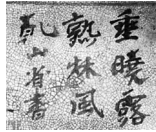 垂曉露
熟林風
乾山省書